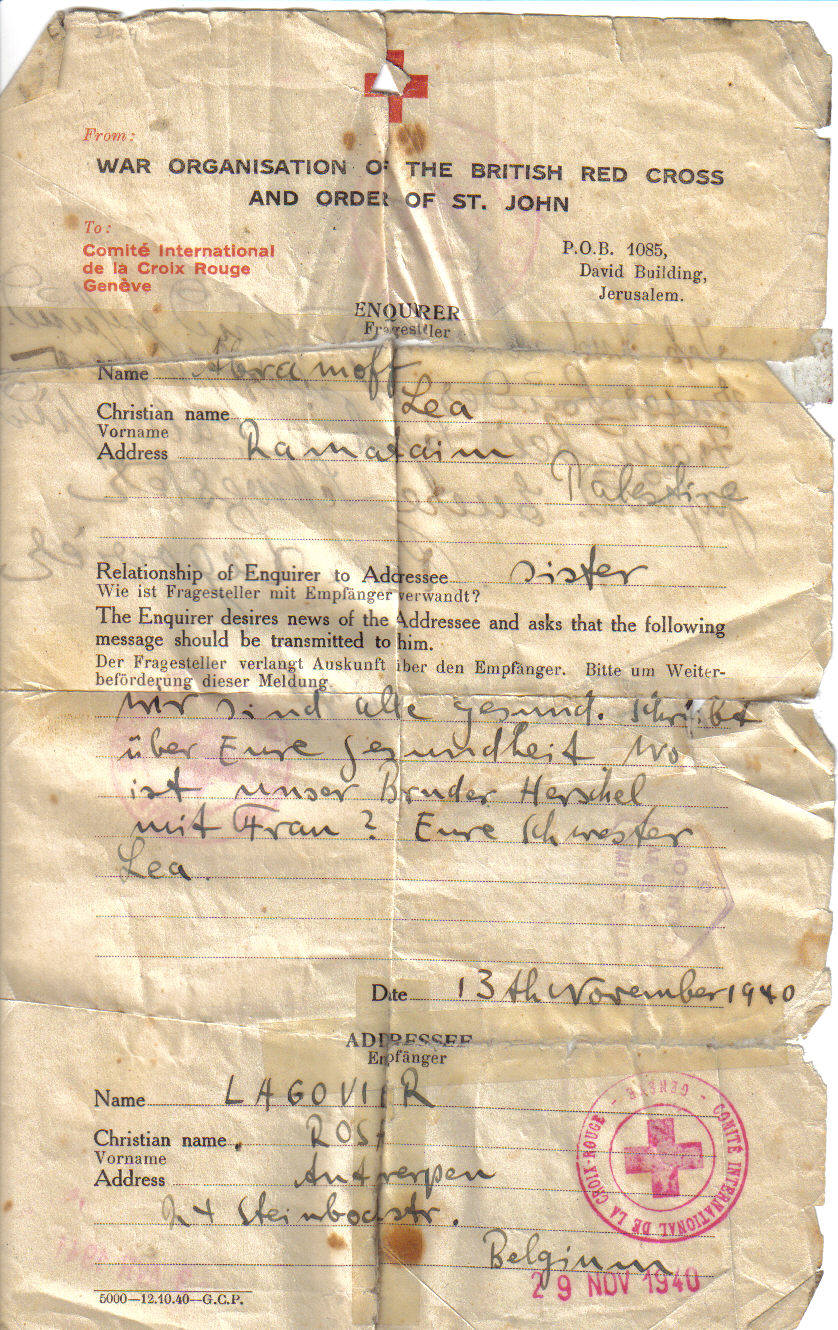 From:
WAR ORGANISATION OF THE BRITISH RED CROSS
AND ORDER OF ST. JOHN
To:
Comité International
de la Croix Rouge
Genève
P.O.B. 1085,
David Building,
Jerusalem.
ENQUIRER
Fragesteller
Name Abramoff
Christian name Lea
Vorname
Address Ramataim
Palestine
Relationship of Enquirer to Addressee sister
Wie ist Fragesteller mit Empfänger verwandt?
The Enquirer desires news of the Addressee and asks that the following
message should be transmitted to him.
Der Fragesteller verlangt Auskunft über den Empfänger. Bitte um Weiter-
beförderung dieser Meldung.
Wir sind alle gesund. Schreibt
über Eure Gesundheit. Wo
ist unser Bruder Herschel
mit Frau? Eure Schwester
Lea.
Date 13th November 1940
ADDRESSEE
Empfänger
Name LAGOVIER
Christian name ROSA
Vorname
Address Antwerpen
Belgium
COMITÉ INTERNATIONAL DE LA CROIX-ROUGE - GENÈVE -
29 NOV 1940
5000—12.10.40—G.C.P.